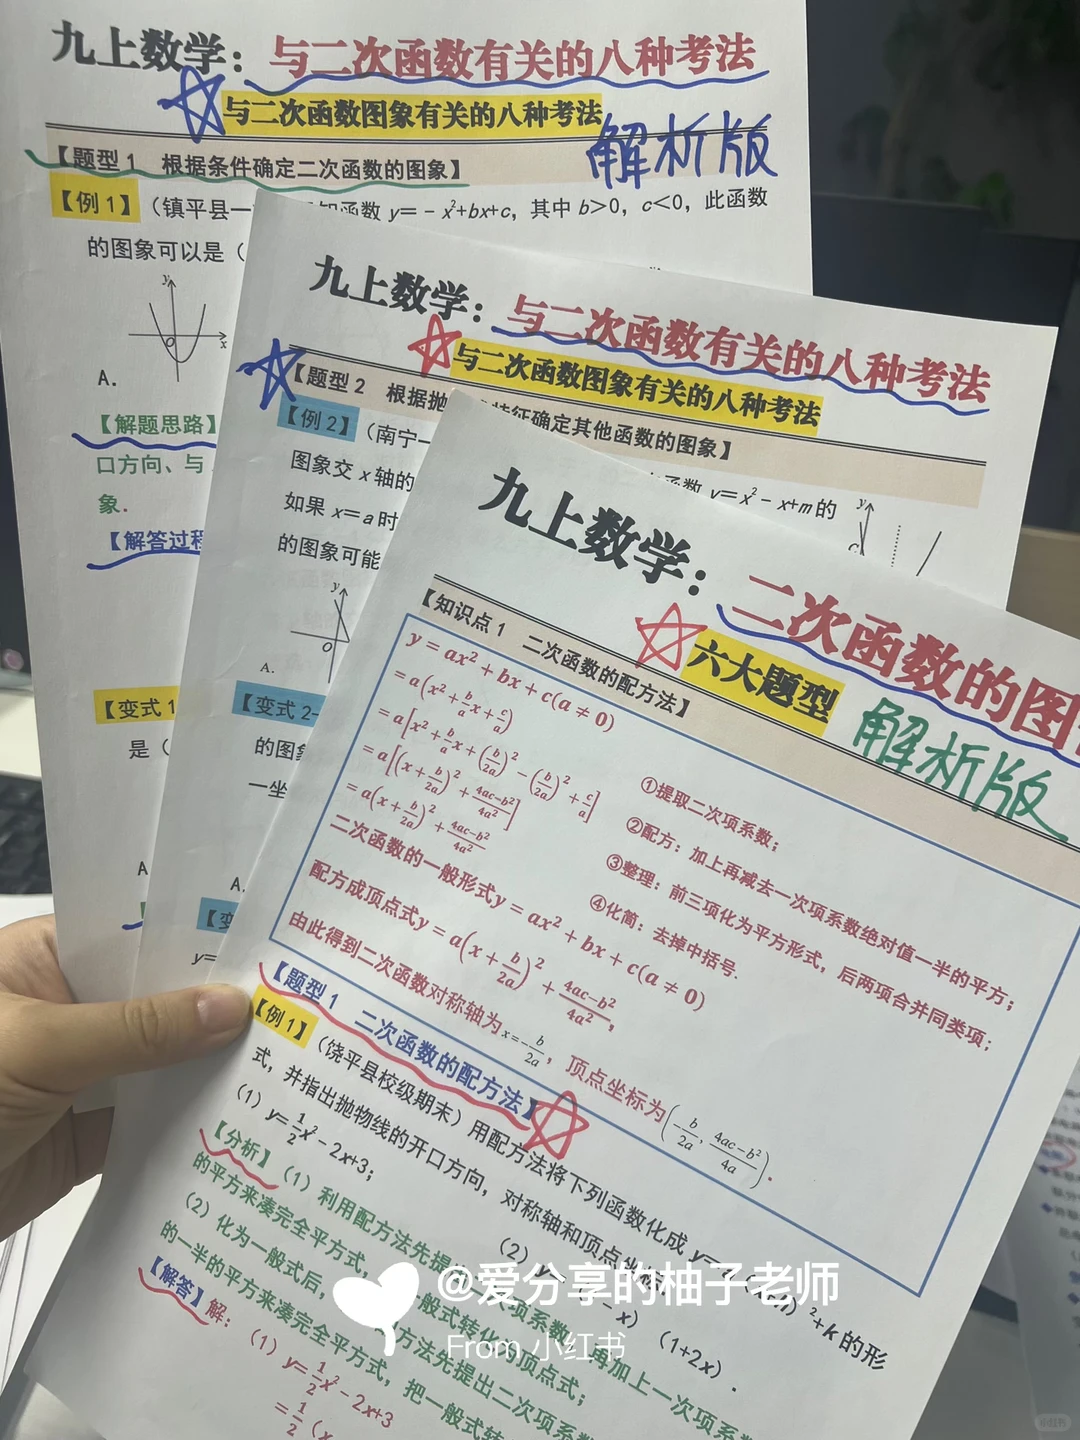 九上数学：与二次函数有关的八种考法
与二次函数图象有关的八种考法
解析版
【题型1 根据条件确定二次函数的图象】
【例1】（镇平县一
知函数 y=－x²+bx+c，其中 b＞0，c＜0，此函数
的图象可以是（
y
O
x
A.
【解题思路】
口方向、与
象．
【解答过程
【变式1
是（
A
九上数学：与二次函数有关的八种考法
与二次函数图象有关的八种考法
【题型2 根据抛
特征确定其他函数的图象】
【例2】（南宁一
函数 y=x²－x+m的
图象交 x 轴的
如果 x=a 时
的图象可能
y
C
y
O
A.
【变式2-
的图象
一坐
A.
【变
y=
九上数学：二次函数的图
六大题型
解析版
【知识点1 二次函数的配方法】
y = ax² + bx + c(a ≠ 0)
= a(x² + b/a x + c/a) ①提取二次项系数；
= a[x² + b/a x + (b/2a)² − (b/2a)² + c/a] ②配方：加上再减去一次项系数绝对值一半的平方；
= a[(x + b/2a)² + 4ac−b²/4a²] ③整理：前三项化为平方形式，后两项合并同类项；
= a(x + b/2a)² + 4ac−b²/4a² ④化简：去掉中括号.
二次函数的一般形式y = ax² + bx + c(a ≠ 0)
配方成顶点式y = a(x + b/2a)² + 4ac−b²/4a²，
由此得到二次函数对称轴为x=−b/2a，顶点坐标为(−b/2a, 4ac−b²/4a).
【题型1 二次函数的配方法】
【例1】（饶平县校级期末）用配方法将下列函数化成 y=a（x+h）²+k 的形
式，并指出抛物线的开口方向，对称轴和顶点坐标．
（1）y=1/2x²－2x+3；（2）y=（1－x）（1+2x）．
【分析】（1）利用配方法先提
次项系数，再加上一次项系数
的平方来凑完全平方式，
般式转化为顶点式；
（2）化为一般式后，
方法先提出二次项系数
的一半的平方来凑完全平方式，把一般式转
【解答】解：（1）y=1/2x²－2x+3
=1/2（x
@爱分享的柚子老师
From 小红书
小红书